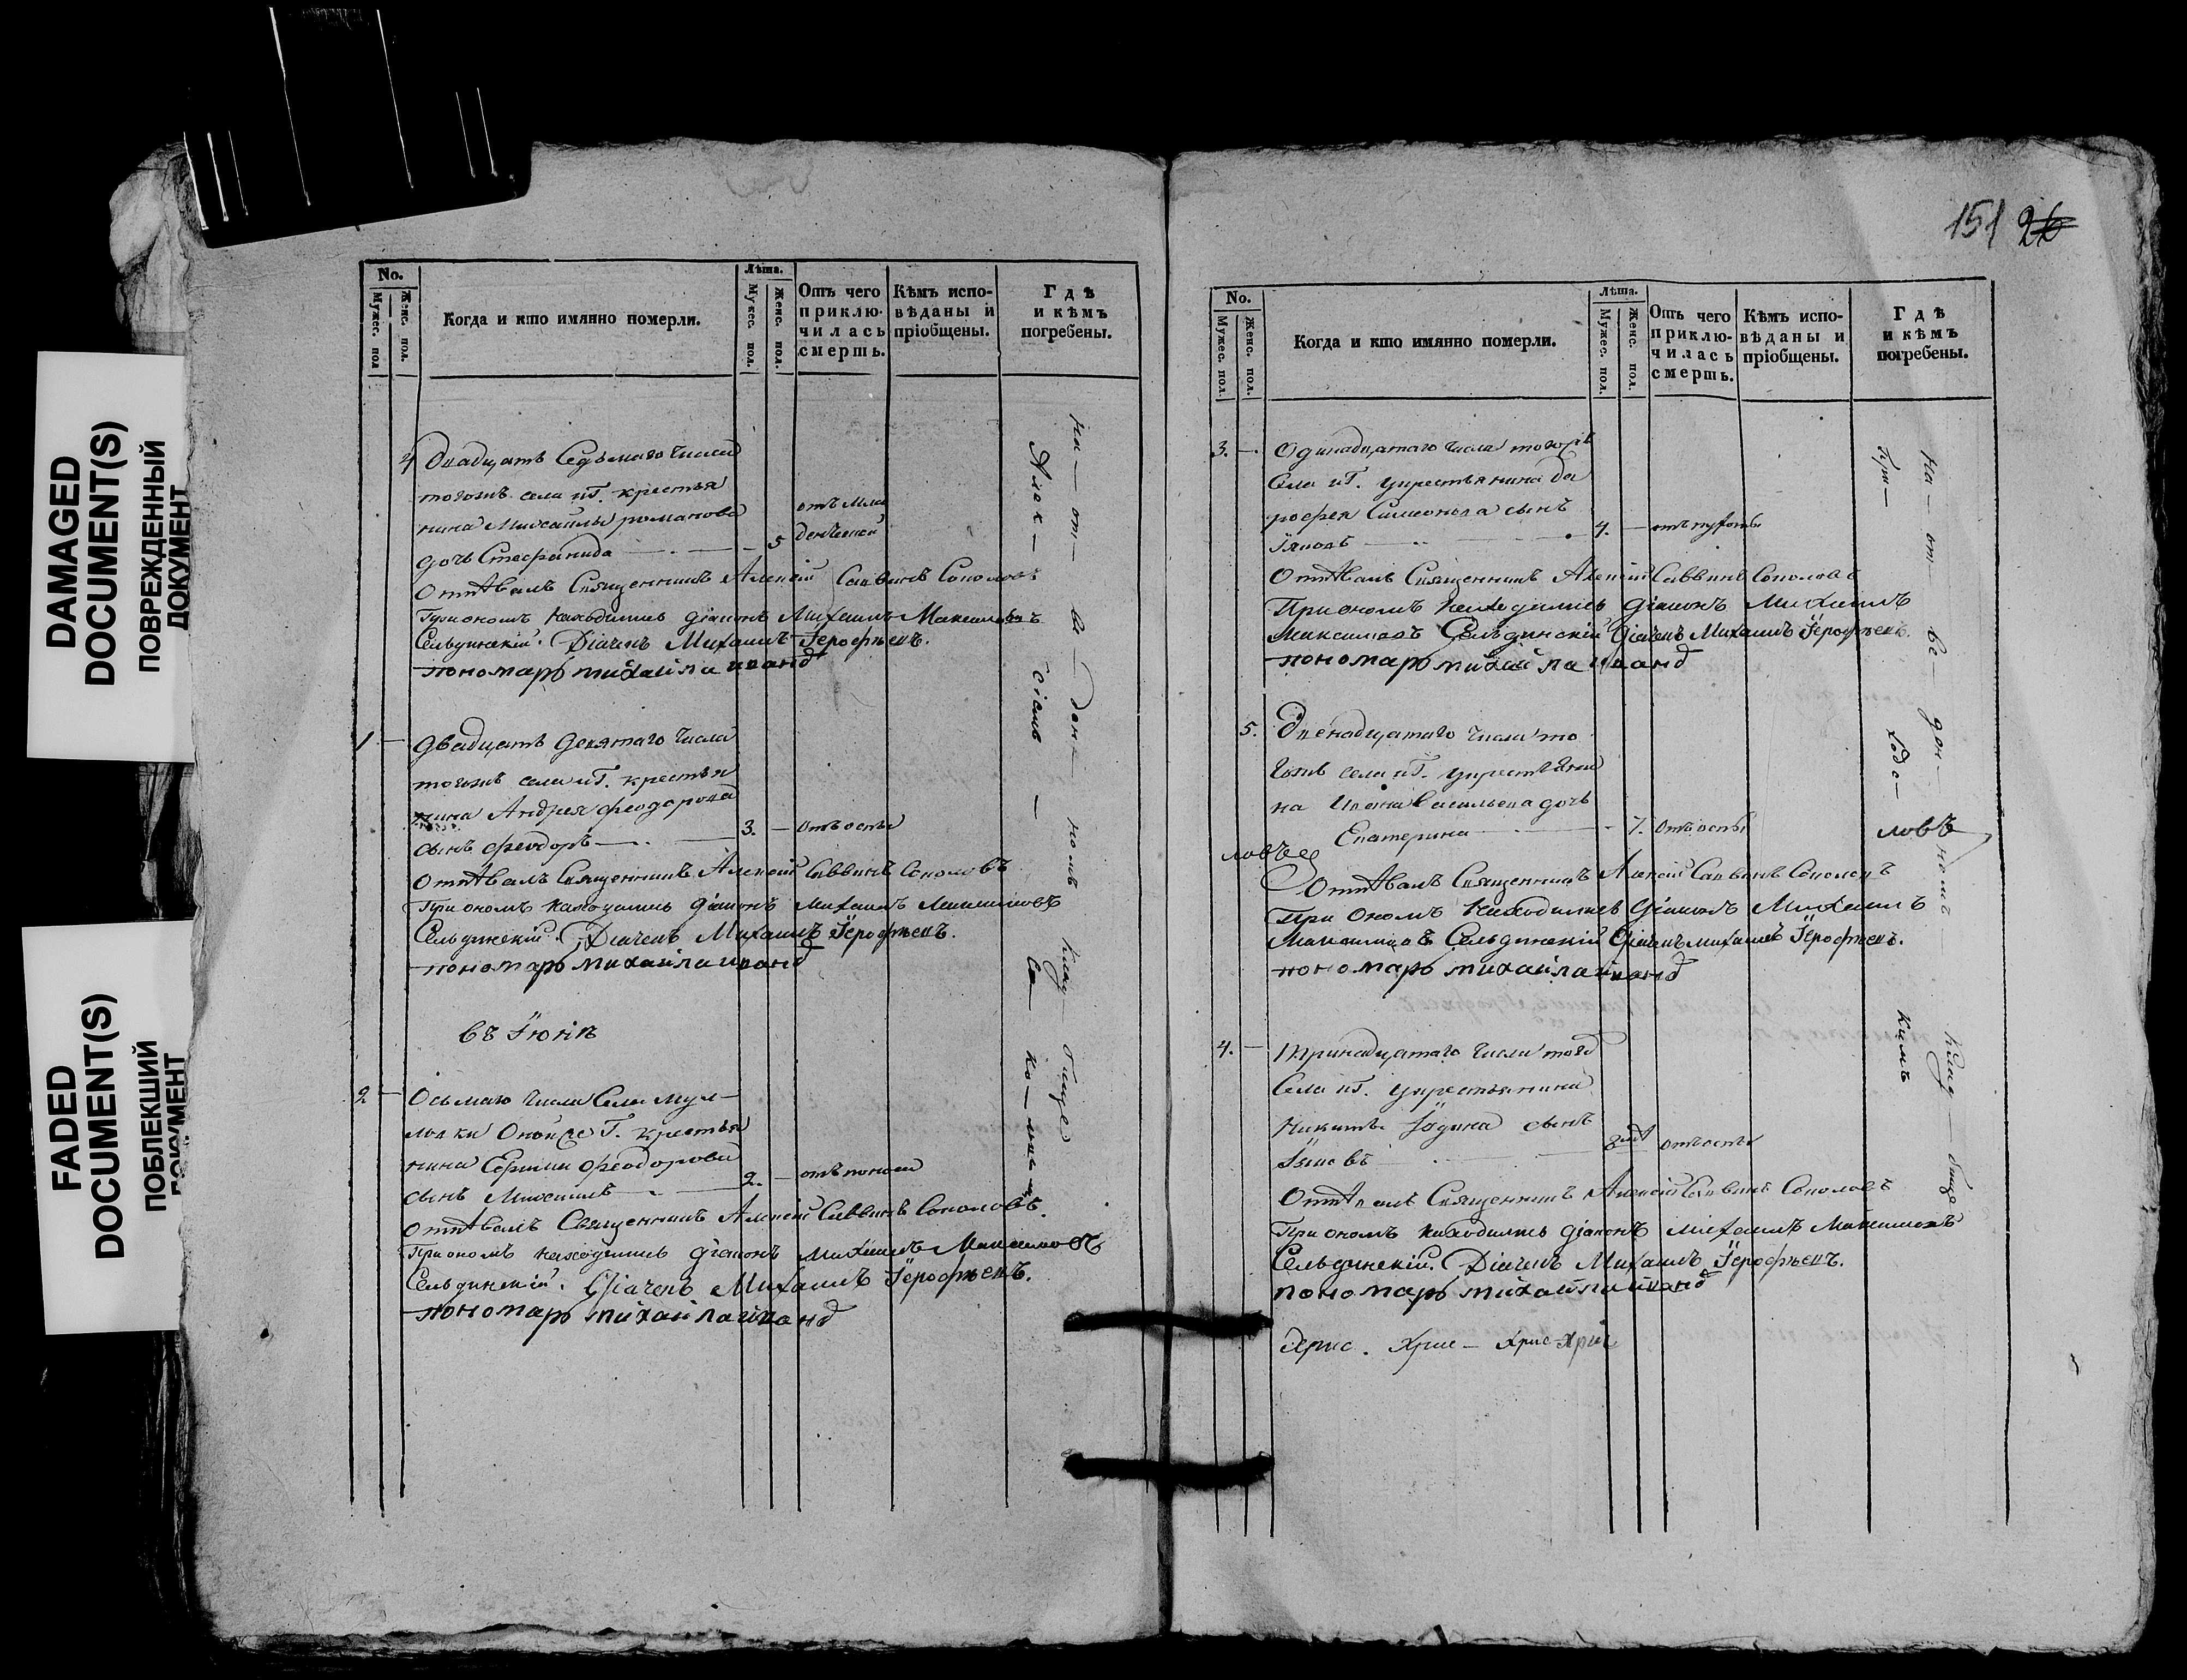 DAMAGED
DOCUMENT(S)
ПОВРЕЖДЕННЫЙ
ДОКУМЕНТ
FADED
DOCUMENT(S)
ПОБЛЕКШИЙ
ДОКУМЕНТ
No.
Мужес. пол
Женс. пол.
Когда и кто имянно померли.
Лѣта.
Мужес. пол.
Женс. пол.
Отъ чего
приклю-
чилась
смерть.
Кѣмъ испо-
вѣданы и
пріобщены.
Гдѣ
и кѣмъ
погребены.
4 Двадцать Седьмаго Числа
тогожъ села иГ. крестья
нина Михайлы романова
дочь Стефанида 5 отъ мла
денческой
Отпѣвалъ Священникъ Алексій Саввинъ Соколовъ
При ономъ находились діаконъ Михаилъ Максимовъ
Сельдинскій. Діачекъ Михаилъ Іерофѣевъ.
пономарь михайла иванд
1 — Двадцать Девятаго Числа
тогожъ села иГ. крестья
нина Андрея Феодорова
сынъ Феодоръ 3. — отъ оспы
Отпѣвалъ Священникъ Алексій Саввинъ Соколовъ
При ономъ находились діаконъ Михаилъ Максимовъ
Сельдинскій. Діачекъ Михаилъ Іерофѣевъ.
пономарь михайла иванд
въ Іюнѣ
2 — Осьмаго Числа Села
Г. крестья
нина Феодорова
сынъ Михаилъ 2. — отъ поноса
Отпѣвалъ Священникъ Алексій Саввинъ Соколовъ.
При ономъ находились діаконъ Михаилъ Максимовъ
Сельдинскій. Діачекъ Михаилъ Іерофѣевъ.
пономарь михайла иванд
На — от — ве — ден — номъ клад — бище
Алек — сіемъ — Со — ко —
151 26
No.
Мужес. пол.
Женс. пол.
Когда и кто имянно померли.
Лѣта.
Мужес. пол.
Женс. пол.
Отъ чего
приклю-
чилась
смерть.
Кѣмъ испо-
вѣданы и
пріобщены.
Гдѣ
и кѣмъ
погребены.
3. — Одинадцатаго Числа тогожъ
Села иГ. укрестьянина До
рофея Симеонова сынъ
Іяковъ 4. —
Отпѣвалъ Священникъ Алексій Саввинъ Соколовъ
При ономъ находились діаконъ Михаилъ
Максимовъ Сельдинскій Діачекъ Михаилъ Іерофѣевъ.
пономарь михайла иванд
5. Двенадцатаго Числа то
гожъ села иГ. укрестьяни
на Ивана Васильева дочь
Екатерина — 7. отъ оспы
ловъ
Отпѣвалъ Священникъ Алексій Саввинъ Соколовъ
При Ономъ Находились діаконъ Михаилъ
Максимовъ Сельдинскій Діачекъ михаилъ Іерофѣевъ.
пономарь михайла иванд
4. — Тринадцатаго Числа того
Села иГ. укрестьянина
Никиты сынъ
отъ оспы
Отпѣвалъ Священникъ Алексій Саввинъ Соколовъ
При ономъ находились діаконъ Михаилъ Максимовъ
Сельдинскій. Діачекъ Михаилъ Іерофѣевъ.
пономарь михайла иванд
Хрис. Хрис — Хрис Хрис
На — от — ве — ден — номъ — клад — бище
При — ход — скимъ
ловъ